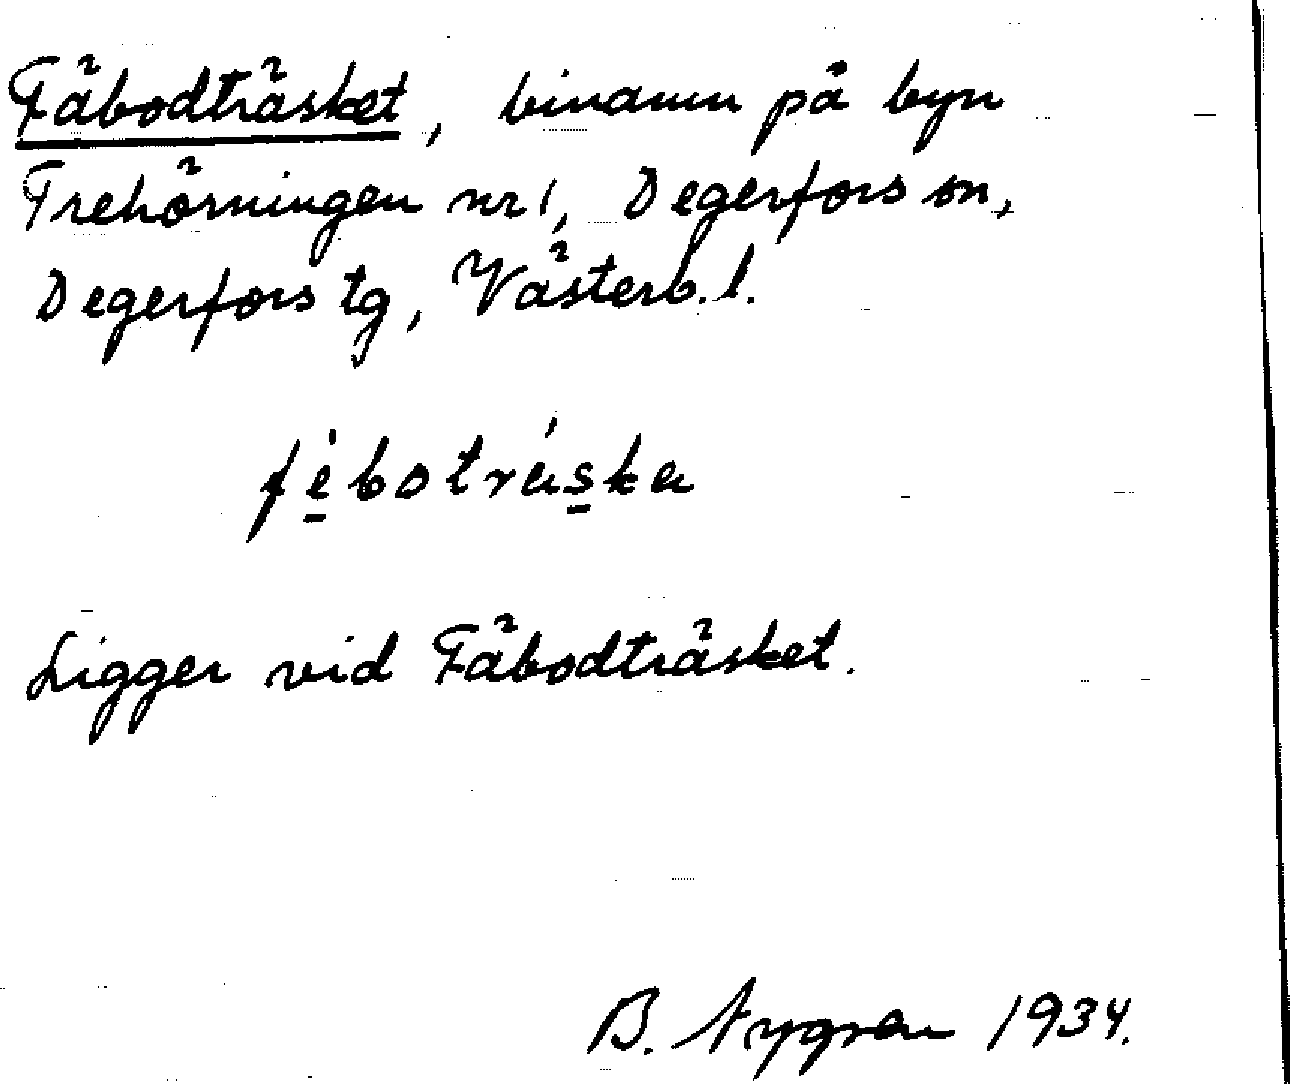 Fäbodträsket, binamn på byn
Trehörningen nr 1, Degerfors sn,
Degerfors tg, Västerb. l.
fèbotráska
Ligger vid Fäbodträsket.
B. Nygren 1934.